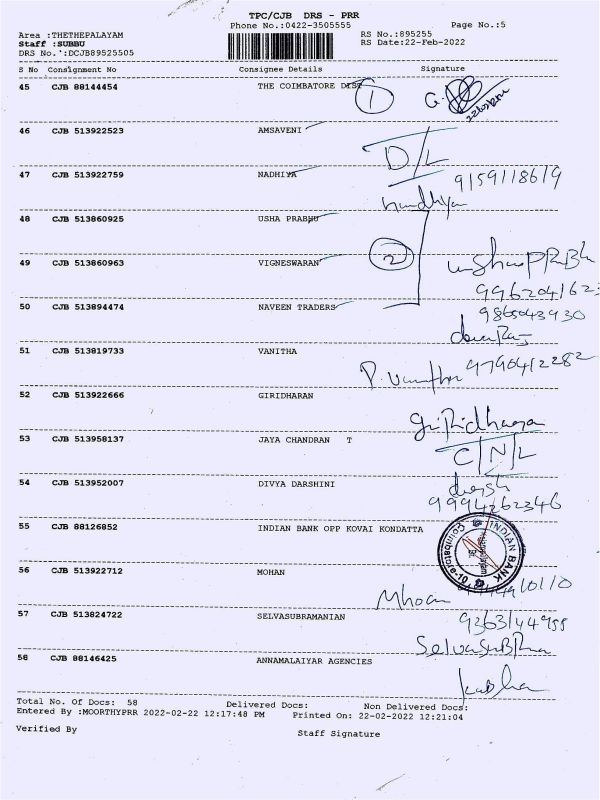 TPC/CJB DRS - PRR
Phone No.:0422-3505555 Page No.:5
Area :THETHEPALAYAM RS No.:895255
Staff :SUBBU RS Date:22-Feb-2022
DRS No.':DCJB89525505
S No Consignment No Consignee Details Signature
45 CJB 88144454 THE COIMBATORE DIST 1 G.
46 CJB 513922523 AMSAVENI D/L
47 CJB 513922759 NADHIYA 9159118619
nandhiya
48 CJB 513860925 USHA PRABHU
49 CJB 513860963 VIGNESWARAN 2
9962041623
50 CJB 513894474 NAVEEN TRADERS 9865043930
51 CJB 513819733 VANITHA
9790412282
52 CJB 513922666 GIRIDHARAN
53 CJB 513958137 JAYA CHANDRAN T C/N/L
54 CJB 513952007 DIVYA DARSHINI
9994262346
55 CJB 88126852 INDIAN BANK OPP KOVAI KONDATTA
INDIAN BANK
Coimbatore-10
56 CJB 513922712 MOHAN
57 CJB 513824722 SELVASUBRAMANIAN
58 CJB 88146425 ANNAMALAIYAR AGENCIES
Total No. Of Docs: 58 Delivered Docs: Non Delivered Docs:
Entered By :MOORTHYPRR 2022-02-22 12:17:48 PM Printed On: 22-02-2022 12:21:04
Verified By Staff Signature